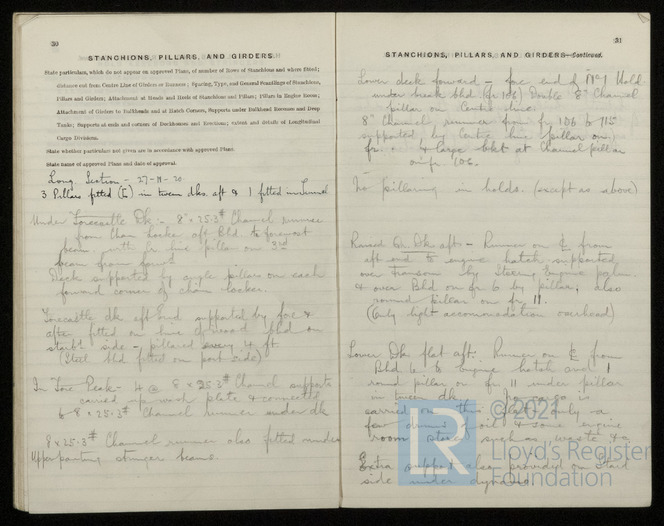 30
STANCHIONS, PILLARS, AND GIRDERS
State particulars, which do not appear on approved Plans, of number of Rows of Stanchions and where fitted;
distance out from Centre Line of Girders or Runners; Spacing, Type, and General Scantlings of Stanchions,
Pillars and Girders; Attachment at Heads and Heels of Stanchions and Pillars; Pillars in Engine Room;
Attachment of Girders to Bulkheads and at Hatch Corners, Supports under Bulkhead Recesses and Deep
Tanks; Supports at ends and corners of Deckhouses and Erections; extent and details of Longitudinal
Corps Divisions.
State whether particulars not given are in accordance with approved Plans.
State name of approved Plans and date of approval.
Long. Section - 27-11-20
3 Pillars fitted in tween dks. aft & 1 fitted in
Under Forecastle Dk :- 8" x 25·3# Channel runner
from Chain locker aft Bld. to foremost
beam with pillar on 3rd
beam from forw'd
Deck supported by angle pillars on each
forward corner of chain locker.
Forecastle dk aft end supported by fore &
after fitted in line of wood bhd on
starb'd side - pillared every 4 ft
(Steel bhd fitted on port side)
In Fore Peak - 4 @ 8 x 25·3# Channel supports
carried up wash plate & connected
to 8 x 25·3# Channel runner under dk
8 x 25·3# Channel runner also fitted under
Upper panting stringer beams.
31
STANCHIONS, PILLARS, AND GIRDERS—Continued.
Lower deck forward - fore end of No 1 Hold
under break bhd (fr 106) Double 8" Channel
pillar on Centre line.
8" Channel runner from fr 106 to 115
supported by Centre line pillar on
fr. & large bkt at Channel pillar
on fr 106.
No pillaring in holds. (except as above)
Raised Qr. Dk aft - Runner on ℄ from
aft end to engine hatch supported
over transom by Steering Engine
& over Bhd on fr 6 by pillar; also
round pillar on fr 11.
(Only light accommodation overhead)
Lower Dk flat aft. Runner on ℄ from
Bhd 6 to engine hatch and 1
round pillar on fr 11 under pillar
in tween dk. No cargo is
carried on this flat - only a
few drums of oil & some engine
room stores such as waste &c
Extra support also provided on Starb'd
side under dynamo
© 2021
LR
Lloyd's Register
Foundation